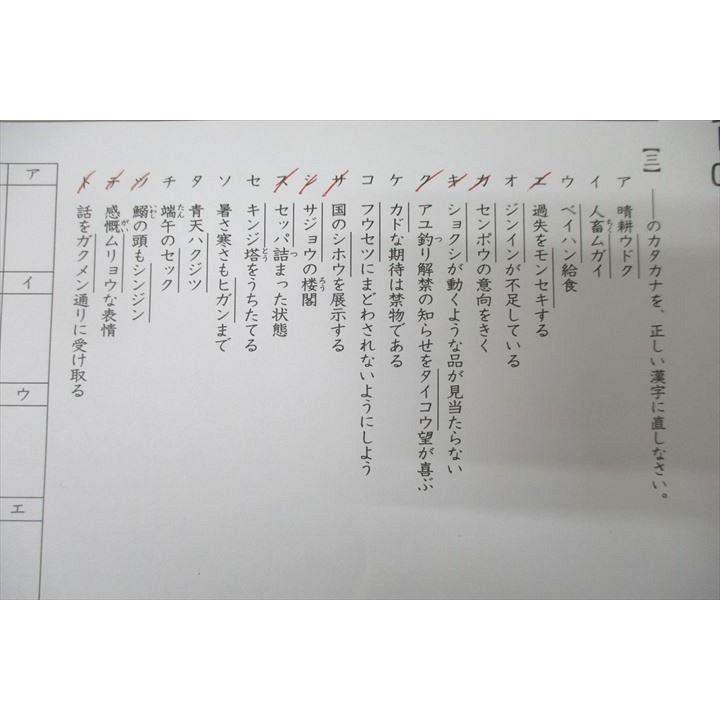 【三】――のカタカナを、正しい漢字に直しなさい。
ア 晴耕ウドク
イ 人畜ムガイ
ウ ベイハン給食
エ 過失をモンセキする
オ ジンインが不足している
カ センポウの意向をきく
キ ショクシが動くような品が見当たらない
ク アユ釣り解禁の知らせをタイコウ望が喜ぶ
ケ カドな期待は禁物である
コ フウセツにまどわされないようにしよう
サ 国のシホウを展示する
シ サジョウの楼閣
ス セッパ詰まった状態
セ キンジ塔をうちたてる
ソ 暑さ寒さもヒガンまで
タ 青天ハクジツ
チ 端午のセック
ツ 鰯の頭もシンジン
テ 感慨ムリョウな表情
ト 話をガクメン通りに受け取る
ア
イ
ウ
エ